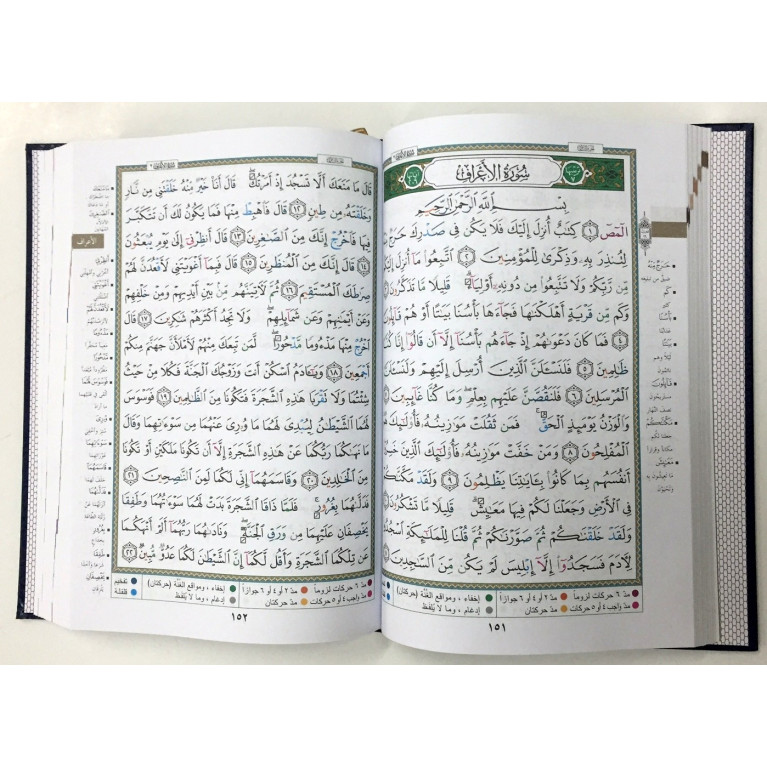 سُورَةُ الأَعْرَافِ
بِسْمِ اللَّهِ الرَّحْمَٰنِ الرَّحِيمِ
الٓمٓصٓ ١ كِتَٰبٌ أُنزِلَ إِلَيْكَ فَلَا يَكُن فِي صَدْرِكَ حَرَجٌ
لِتُنذِرَ بِهِۦ وَذِكْرَىٰ لِلْمُؤْمِنِينَ ٢ اتَّبِعُوا۟ مَآ أُنزِلَ إِلَيْكُم
مِّن رَّبِّكُمْ وَلَا تَتَّبِعُوا۟ مِن دُونِهِۦٓ أَوْلِيَآءَ ۗ قَلِيلًا مَّا تَذَكَّرُونَ
وَكَم مِّن قَرْيَةٍ أَهْلَكْنَٰهَا فَجَآءَهَا بَأْسُنَا بَيَٰتًا أَوْ هُمْ قَآئِلُونَ
٤ فَمَا كَانَ دَعْوَىٰهُمْ إِذْ جَآءَهُم بَأْسُنَآ إِلَّآ أَن قَالُوٓا۟ إِنَّا كُنَّا
ظَٰلِمِينَ ٥ فَلَنَسْـَٔلَنَّ الَّذِينَ أُرْسِلَ إِلَيْهِمْ وَلَنَسْـَٔلَنَّ
الْمُرْسَلِينَ ٦ فَلَنَقُصَّنَّ عَلَيْهِم بِعِلْمٍ ۖ وَمَا كُنَّا غَآئِبِينَ ٧
وَالْوَزْنُ يَوْمَئِذٍ الْحَقُّ ۚ فَمَن ثَقُلَتْ مَوَٰزِينُهُۥ فَأُو۟لَٰٓئِكَ هُمُ
الْمُفْلِحُونَ ٨ وَمَنْ خَفَّتْ مَوَٰزِينُهُۥ فَأُو۟لَٰٓئِكَ الَّذِينَ خَسِرُوٓا۟
أَنفُسَهُم بِمَا كَانُوا۟ بِـَٔايَٰتِنَا يَظْلِمُونَ ٩ وَلَقَدْ مَكَّنَّٰكُمْ
فِي الْأَرْضِ وَجَعَلْنَا لَكُمْ فِيهَا مَعَٰيِشَ ۗ قَلِيلًا مَّا تَشْكُرُونَ
وَلَقَدْ خَلَقْنَٰكُمْ ثُمَّ صَوَّرْنَٰكُمْ ثُمَّ قُلْنَا لِلْمَلَٰٓئِكَةِ اسْجُدُوا۟
لِءَادَمَ فَسَجَدُوٓا۟ إِلَّآ إِبْلِيسَ لَمْ يَكُن مِّنَ السَّٰجِدِينَ ١١
مدّ ٦ حركات لزوماً مدّ ٢ أو ٤ أو ٦ جوازاً إخفاء ، ومواقع الغُنّة (حركتان)
مدّ واجب ٤ أو ٥ حركات مدّ حركتان إدغام ، وما لا يُلفظ
١٥١
حَرَجٌ مِنْهُ
كَمْ
بَأْسُنَا
بَيَاتًا
قَائِلُونَ
مَكَّنَّاكُمْ
مَعَايِشَ
قَالَ مَا مَنَعَكَ أَلَّا تَسْجُدَ إِذْ أَمَرْتُكَ ۖ قَالَ أَنَا۠ خَيْرٌ مِّنْهُ خَلَقْتَنِي مِن نَّارٍ
وَخَلَقْتَهُۥ مِن طِينٍ ١٢ قَالَ فَاهْبِطْ مِنْهَا فَمَا يَكُونُ لَكَ أَن تَتَكَبَّرَ
فِيهَا فَاخْرُجْ إِنَّكَ مِنَ الصَّٰغِرِينَ ١٣ قَالَ أَنظِرْنِيٓ إِلَىٰ يَوْمِ يُبْعَثُونَ
١٤ قَالَ إِنَّكَ مِنَ الْمُنظَرِينَ ١٥ قَالَ فَبِمَآ أَغْوَيْتَنِي لَأَقْعُدَنَّ لَهُمْ
صِرَٰطَكَ الْمُسْتَقِيمَ ١٦ ثُمَّ لَـَٔاتِيَنَّهُم مِّنۢ بَيْنِ أَيْدِيهِمْ وَمِنْ خَلْفِهِمْ
وَعَنْ أَيْمَٰنِهِمْ وَعَن شَمَآئِلِهِمْ ۖ وَلَا تَجِدُ أَكْثَرَهُمْ شَٰكِرِينَ ١٧ قَالَ
اخْرُجْ مِنْهَا مَذْءُومًا مَّدْحُورًا ۖ لَّمَن تَبِعَكَ مِنْهُمْ لَأَمْلَأَنَّ جَهَنَّمَ مِنكُمْ
أَجْمَعِينَ ١٨ وَيَٰٓـَٔادَمُ اسْكُنْ أَنتَ وَزَوْجُكَ الْجَنَّةَ فَكُلَا مِنْ حَيْثُ
شِئْتُمَا وَلَا تَقْرَبَا هَٰذِهِ الشَّجَرَةَ فَتَكُونَا مِنَ الظَّٰلِمِينَ ١٩ فَوَسْوَسَ
لَهُمَا الشَّيْطَٰنُ لِيُبْدِيَ لَهُمَا مَا وُۥرِيَ عَنْهُمَا مِن سَوْءَٰتِهِمَا وَقَالَ
مَا نَهَىٰكُمَا رَبُّكُمَا عَنْ هَٰذِهِ الشَّجَرَةِ إِلَّآ أَن تَكُونَا مَلَكَيْنِ أَوْ تَكُونَا
مِنَ الْخَٰلِدِينَ ٢٠ وَقَاسَمَهُمَآ إِنِّي لَكُمَا لَمِنَ النَّٰصِحِينَ ٢١
فَدَلَّىٰهُمَا بِغُرُورٍ ۚ فَلَمَّا ذَاقَا الشَّجَرَةَ بَدَتْ لَهُمَا سَوْءَٰتُهُمَا وَطَفِقَا
يَخْصِفَانِ عَلَيْهِمَا مِن وَرَقِ الْجَنَّةِ ۖ وَنَادَىٰهُمَا رَبُّهُمَآ أَلَمْ أَنْهَكُمَا
عَن تِلْكُمَا الشَّجَرَةِ وَأَقُل لَّكُمَآ إِنَّ الشَّيْطَٰنَ لَكُمَا عَدُوٌّ مُّبِينٌ ٢٢
مدّ ٦ حركات لزوماً مدّ ٢ أو ٤ أو ٦ جوازاً إخفاء ، ومواقع الغُنّة (حركتان) تفخيم
مدّ واجب ٤ أو ٥ حركات مدّ حركتان إدغام ، وما لا يُلفظ قلقلة
١٥٢
الأعراف